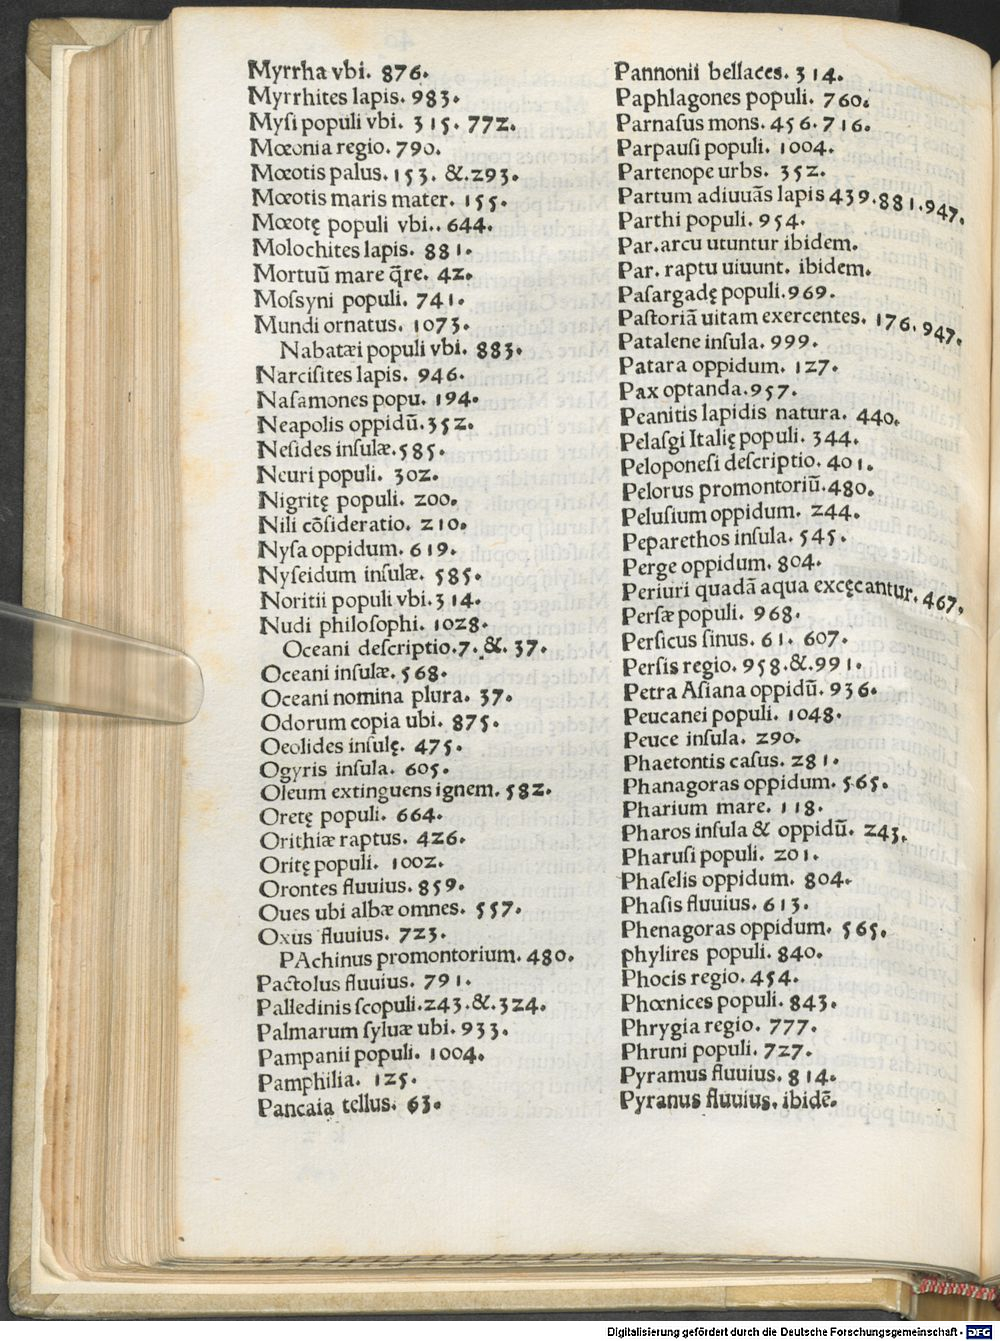 Myrrha vbi. 876.
Myrrhites lapis. 983.
Mysi populi vbi. 315. 772.
Mœonia regio. 790.
Mœotis palus. 153. &.293.
Mœotis maris mater. 155.
Mœotę populi vbi.. 644.
Molochites lapis. 881.
Mortuū mare q̄re. 42.
Mossyni populi. 741.
Mundi ornatus. 1073.
Nabatæi populi vbi. 883.
Narcisites lapis. 946.
Nasamones popu. 194.
Neapolis oppidū.352.
Nesides insulæ.585.
Neuri populi. 302.
Nigritę populi. 200.
Nili cōsideratio. 210.
Nysa oppidum. 619.
Nyseidum insulæ. 585.
Noritii populi vbi.314.
Nudi philosophi. 1028.
Oceani descriptio.7. &. 37.
Oceani insulæ. 568.
Oceani nomina plura. 37.
Odorum copia ubi. 875.
Oeolides insulę. 475.
Ogyris insula. 605.
Oleum extinguens ignem. 582.
Oretę populi. 664.
Orithiæ raptus. 426.
Oritę populi. 1002.
Orontes fluuius. 859.
Oues ubi albæ omnes. 557.
Oxus fluuius. 723.
PAchinus promontorium. 480.
Pactolus fluuius. 791.
Palledinis scopuli.243.&.324.
Palmarum syluæ ubi. 933.
Pampanii populi. 1004.
Pamphilia. 125.
Pancaia tellus. 63.
Pannonii bellaces. 314.
Paphlagones populi. 760.
Parnasus mons. 456. 716.
Parpausi populi. 1004.
Partenope urbs. 352.
Partum adiuuās lapis 439.881.947.
Parthi populi. 954.
Par.arcu utuntur ibidem.
Par. raptu uiuunt. ibidem.
Pasargadę populi.969.
Pastoriā uitam exercentes. 176. 947.
Patalene insula. 999.
Patara oppidum. 127.
Pax optanda.957.
Peanitis lapidis natura. 440.
Pelasgi Italię populi. 344.
Peloponesi descriptio. 401.
Pelorus promontoriū.480.
Pelusium oppidum. 244.
Peparethos insula. 545.
Perge oppidum. 804.
Periuri quadā aqua excęcantur. 467.
Persæ populi. 968.
Persicus sinus. 61. 607.
Persis regio. 958.&.991.
Petra Asiana oppidū. 936.
Peucanei populi. 1048.
Peuce insula. 290.
Phaetontis casus. 281.
Phanagoras oppidum. 565.
Pharium mare. 118.
Pharos insula & oppidū. 243.
Pharusi populi. 201.
Phaselis oppidum. 804.
Phasis fluuius. 613.
Phenagoras oppidum. 565.
phylires populi. 840.
Phocis regio. 454.
Phœnices populi. 843.
Phrygia regio. 777.
Phruni populi. 727.
Pyramus fluuius. 814.
Pyranus fluuius. ibidē.
Digitalisierung gefördert durch die Deutsche Forschungsgemeinschaft - DFG